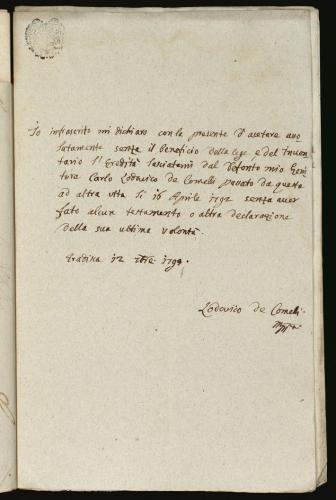 Io infrascrito mi dichiaro con la presente d'accetare asso
lutamente senza il beneficio della lege, e del Inven
tario l'Eredità lasciatami dal Defonto mio Geni
tore Carlo Lodovico de Comelli passato da questa
ad altra vita li 16 Aprile 1792 senza aver
fato alcun testamento o altra declarazione
della sua ultima volontà.
Gradisca 12 1793.
Lodovico de Comelli